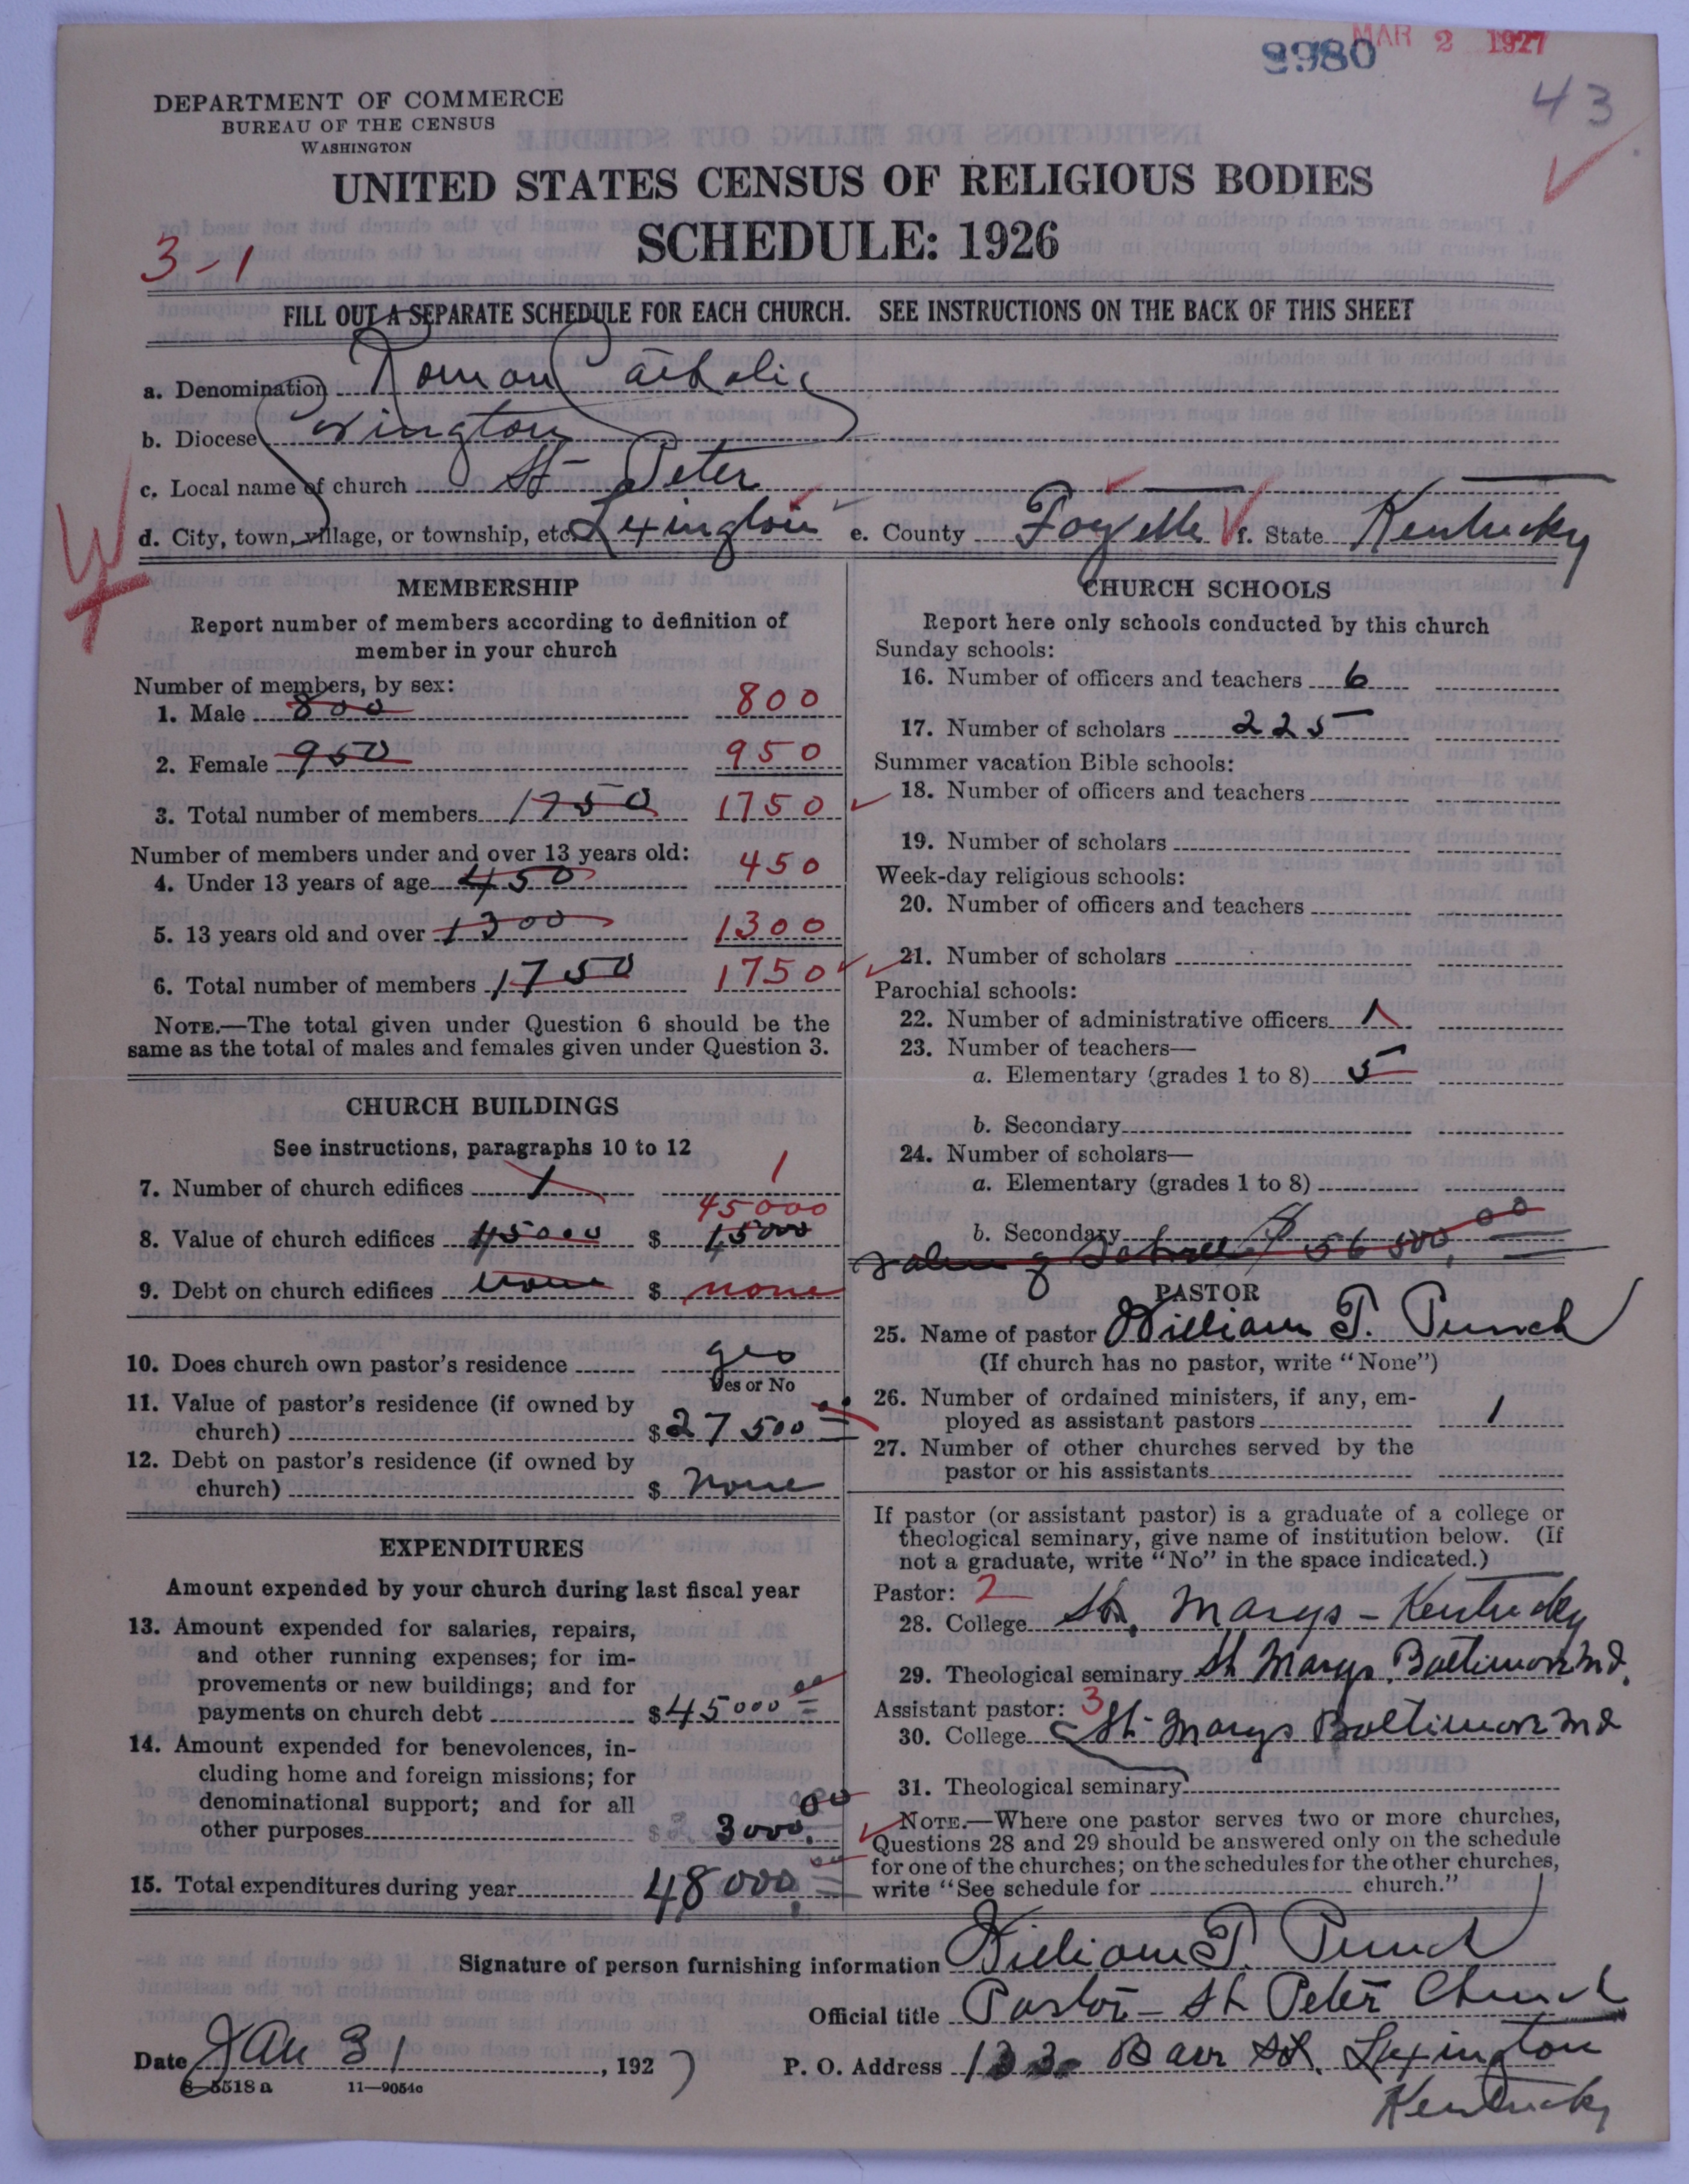 MAR 2 1927
8980
43
DEPARTMENT OF COMMERCE
BUREAU OF THE CENSUS
WASHINGTON
UNITED STATES CENSUS OF RELIGIOUS BODIES
SCHEDULE: 1926
3-1
FILL OUT A SEPARATE SCHEDULE FOR EACH CHURCH. SEE INSTRUCTIONS ON THE BACK OF THIS SHEET
a. Denomination Roman Catholic
b. Diocese Covington
c. Local name of church St Peter
d. City, town, village, or township, etc. Lexington e. County Fayette f. State Kentucky
MEMBERSHIP
Report number of members according to definition of
member in your church
Number of members, by sex:
1. Male 800 800
2. Female 950 950
3. Total number of members 1750 1750
Number of members under and over 13 years old:
4. Under 13 years of age 450 450
5. 13 years old and over 1300 1300
6. Total number of members 1750 1750
NOTE.—The total given under Question 6 should be the
same as the total of males and females given under Question 3.
CHURCH BUILDINGS
See instructions, paragraphs 10 to 12
7. Number of church edifices 1 1
45000
8. Value of church edifices 45000 $ 45000
9. Debt on church edifices none $ none
10. Does church own pastor's residence yes
Yes or No
11. Value of pastor's residence (if owned by
church) $ 27500 00
12. Debt on pastor's residence (if owned by
church) $ None
EXPENDITURES
Amount expended by your church during last fiscal year
13. Amount expended for salaries, repairs,
and other running expenses; for im-
provements or new buildings; and for
payments on church debt $ 45000 00
14. Amount expended for benevolences, in-
cluding home and foreign missions; for
denominational support; and for all
other purposes $ 3000.00
15. Total expenditures during year 48000.00
CHURCH SCHOOLS
Report here only schools conducted by this church
Sunday schools:
16. Number of officers and teachers 6
17. Number of scholars 225
Summer vacation Bible schools:
18. Number of officers and teachers
19. Number of scholars
Week-day religious schools:
20. Number of officers and teachers
21. Number of scholars
Parochial schools:
22. Number of administrative officers 1
23. Number of teachers—
a. Elementary (grades 1 to 8) 5
b. Secondary
24. Number of scholars—
a. Elementary (grades 1 to 8)
b. Secondary
Value of School $ 56 500.00
PASTOR
25. Name of pastor William T. Punch
(If church has no pastor, write "None")
26. Number of ordained ministers, if any, em-
ployed as assistant pastors 1
27. Number of other churches served by the
pastor or his assistants
If pastor (or assistant pastor) is a graduate of a college or
theological seminary, give name of institution below. (If
not a graduate, write "No" in the space indicated.)
Pastor: 2
28. College St. Marys - Kentucky
29. Theological seminary St Marys. Baltimore Md.
Assistant pastor: 3
30. College St. Marys Baltimore Md
31. Theological seminary
NOTE.—Where one pastor serves two or more churches,
Questions 28 and 29 should be answered only on the schedule
for one of the churches; on the schedules for the other churches,
write "See schedule for church."
Signature of person furnishing information William T. Punch
Official title Pastor - St Peter Church
Date Jan 31, 1927 P. O. Address Barr St. Lexington
Kentucky
8—5518a 11—9054c